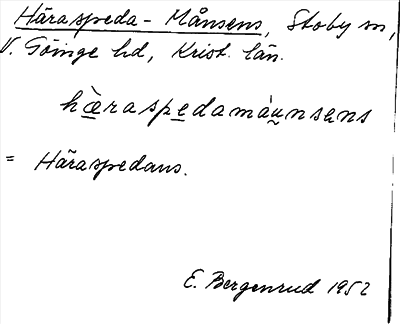 Häraspeda - Månsens, Stoby sn,
V. Göinge hd, Krist. län.
hæ̀raspedamáunsens
= Häraspedans.
E. Bergenrud 1952